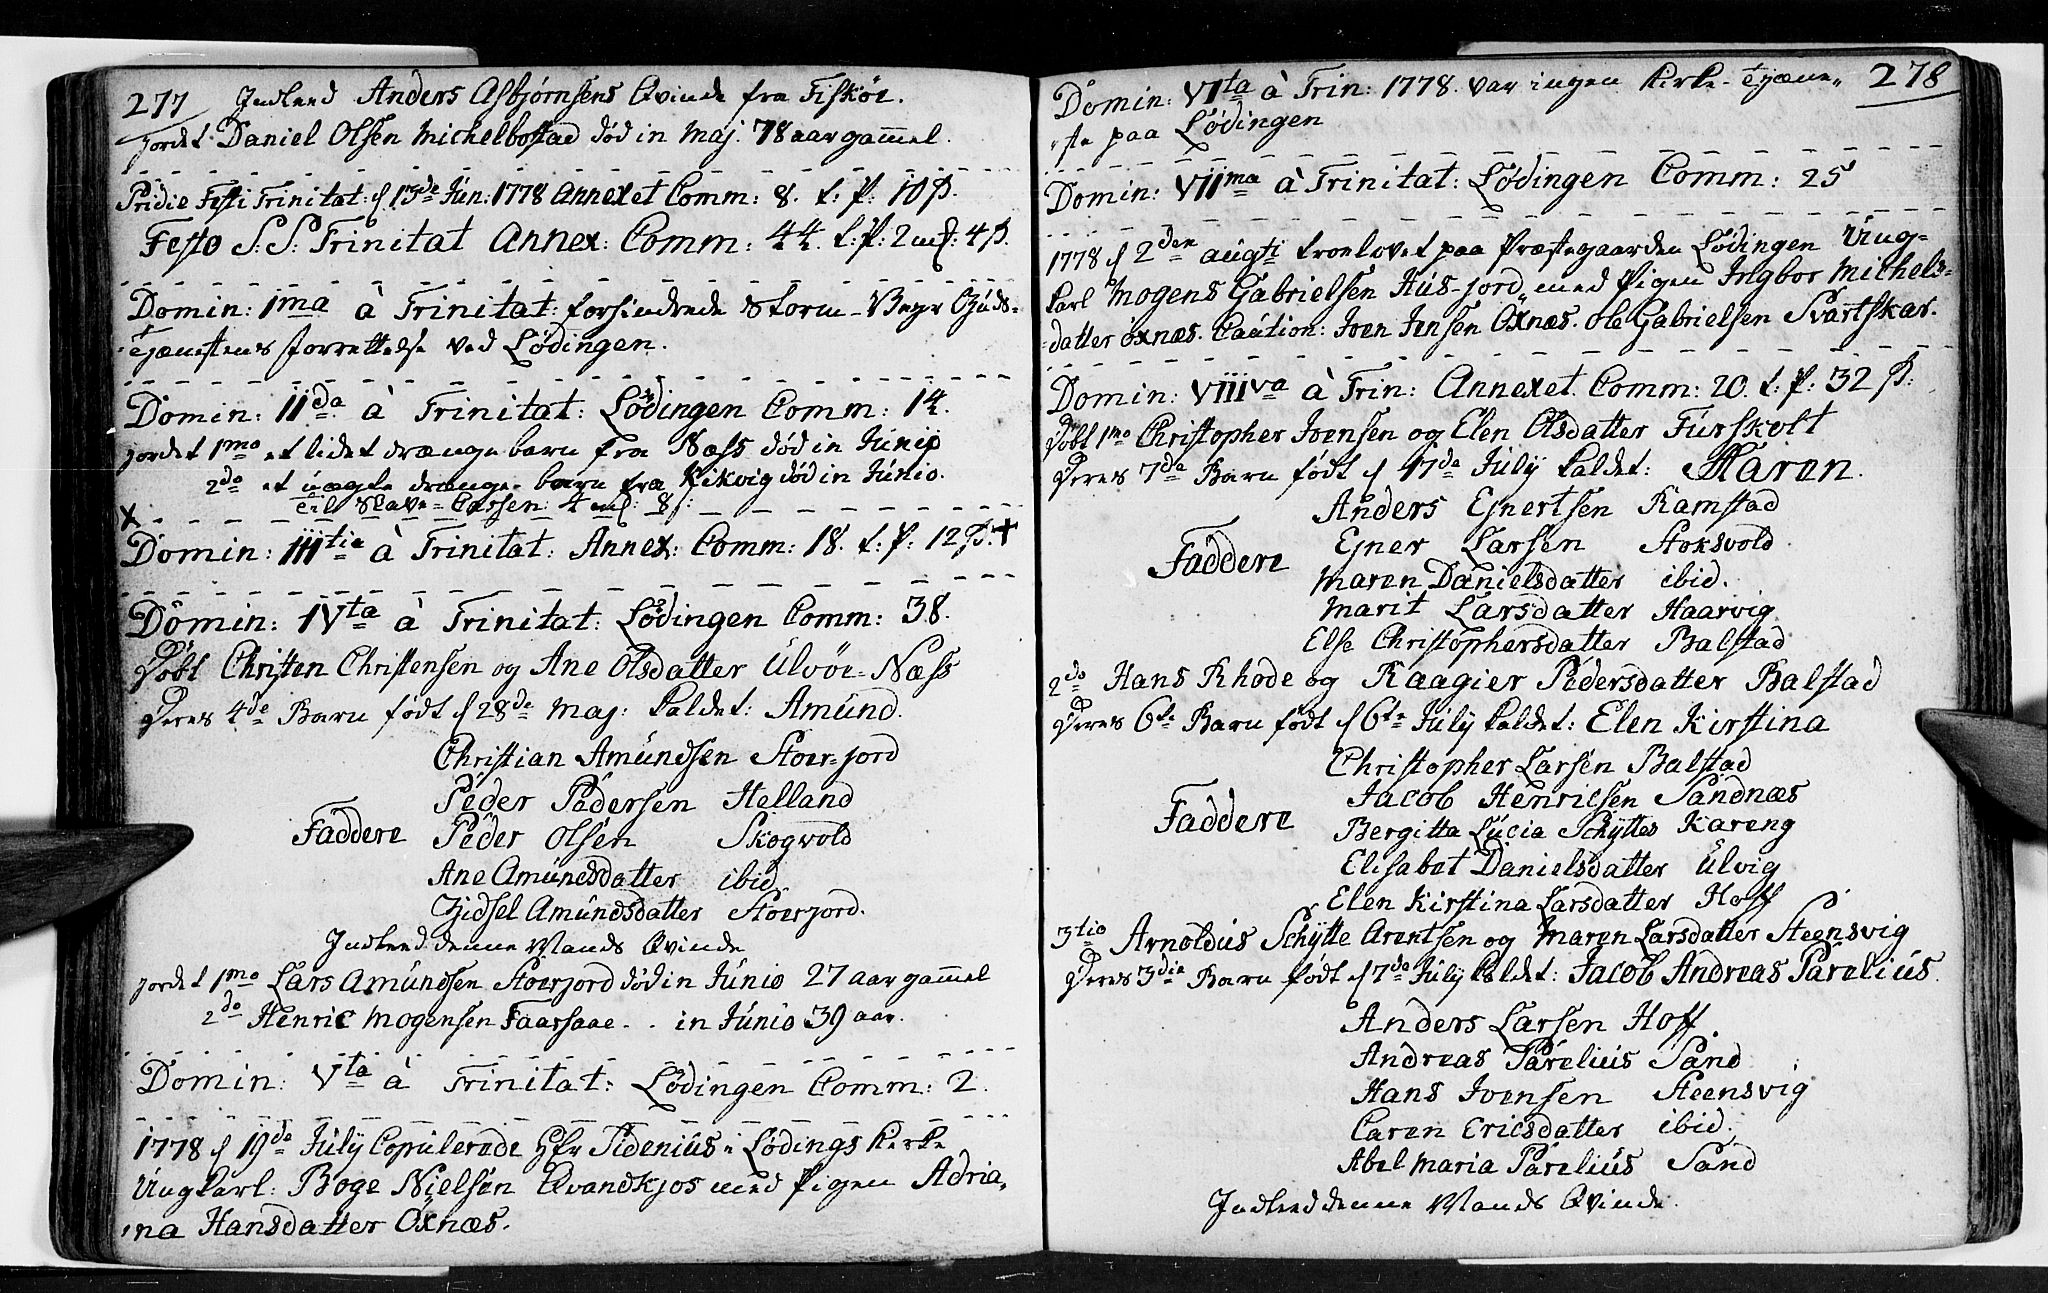 277 Indleed Anders Asbjørnsens Qvinde fra Fiskøe.
jordet Daniel Olsen Michelbostad død in Maj. 78 aar gam̄el.
Pridie Festi Trinitat: d 13de Jun: 1778 Annexet Comm: 8. t: P: 10 ß.
Festo S: S: Trinitat Annex: Comm: 44. t: P: 2 mk: 4 ß.
Domin: 1ma à Trinitat: forhindrede Storm-Veyr Guds-
Tjænestens forrettelse ved Lødingen.
Domin: IIda à Trinitat: Lødingen Comm: 14.
jordet 1mo et lidet drænge barn fra Næss død in Junij
2do et uægte drænge-barn fra Kikvig død in Junio.
til Slave-Cassen: 4 mk: 8 ß:
Domin: IIItia à Trinitat: Annex: Comm: 18. t: P: 12 ß. +
Domin: IVta à Trinitat: Lødingen Comm: 38.
Døbt Christen Christensen og Ane Olsdatter Ulvøe-Næss
Deres 4de Barn født d 28de Maj: kaldet: Amund.
Christian Amundsen Stoer-jord
Peder Pedersen Helland
Faddere Peder Olsen Skogvold
Ane Amundsdatter ibid
Gidsel Amundsdatter Stoerjord.
Indleed denne Mands Qvinde
jordet 1mo Lars Amundsen Stoerjord død in Junio 27 aar gam̄el
2do Henric Mogensen Faarsaae . . in Junio 39 aar.
Domin: Vta à Trinitat: Lødingen Comm: 2.
1778 d 19de July Copulerede Hr Tidenius i Lødings Kirke
Ungkarl: Boge Nielsen Qvandkjos med Pigen Adria-
-na Hansdatter Oxnæs.
Domin: VIta à Trin: 1778. var ingen Kirke-Tjæne- 278
-ste paa Lødingen
Domin: VIIma à Trinitat: Lødingen Comm: 25
1778 d 2den augti troelovet paa Præstegaarden Lødingen Ung-
karl Mogens Gabrielsen Hus-jord, med Pigen Ingbor Michels-
-datter Oxnæs. Caution: Iven Jensen Oxnæs. Ole Gabrielsen Svartskar.
Domin: VIIIva à Trin: Annexet. Comm: 20. t: P: 32 ß:
Døbt 1mo Christopher Ivensen og Elen Olsdatter Furskolt
Deres 7de Barn født d 17de July kaldet: Maren.
Anders Ejnertsen Ramstad
Faddere Ejner Larsen Stoksvold
Maren Danielsdatter ibid.
Marit Larsdatter Haarvig
Else Christophersdatter Balstad
2do Hans Rhode og Raagier Pedersdatter Balstad
Deres 6te Barn født d 6te July kaldet: Elen Kirstina
Christopher Larsen Balstad
Jacob Henricsen Sandnæs
Faddere Bergitta Lucia Schyttes Kareng
Elisabet Danielsdatter Ulvig
Elen Kirstina Larsdatter Hoff
3tio Arnoldus Schytte Arentsen og Maren Larsdatter Steensvig
Deres 3die Barn født d 7de July kaldet: Jacob Andreas Parelius.
Anders Larsen Hoff.
Andreas Parelius Sand
Hans Ivensen Steensvig
Caren Ericsdatter ibid.
Abel Maria Parelius Sand
Indleed denne Mands Qvinde.